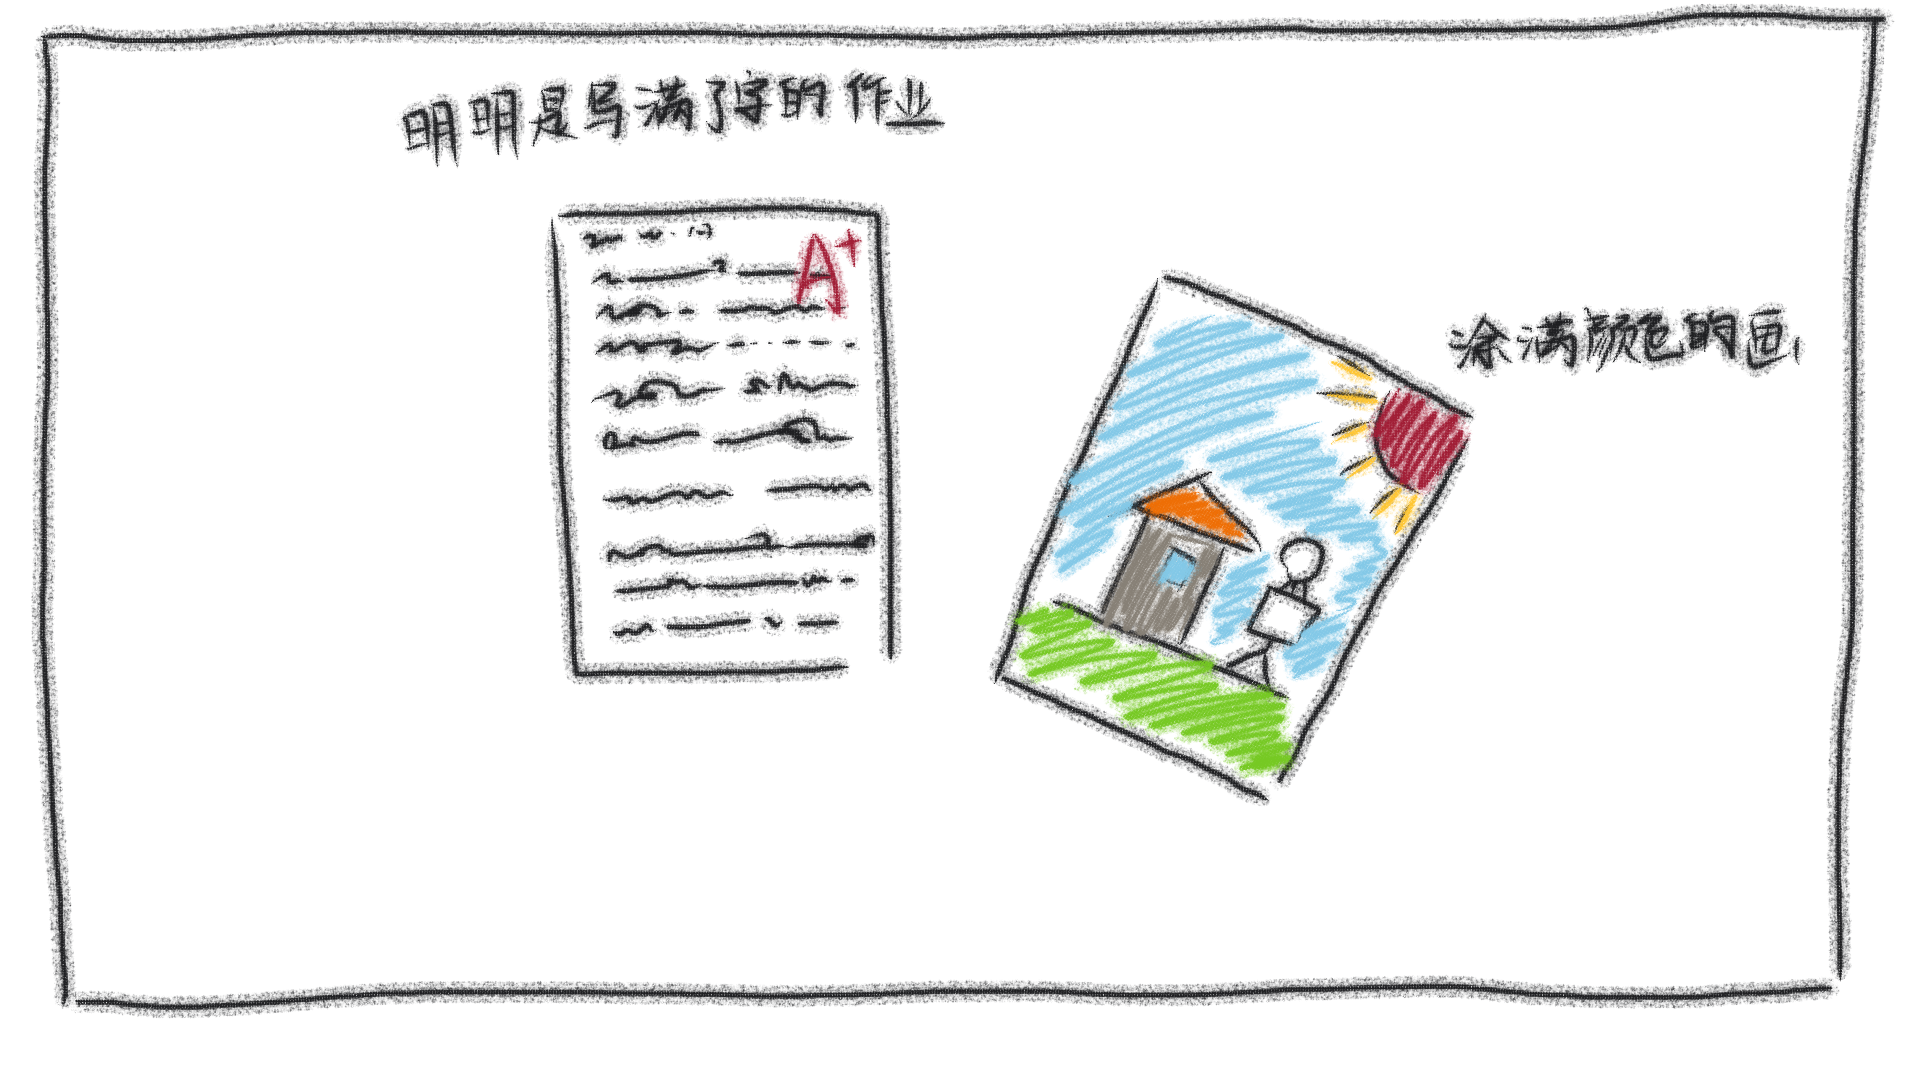 明明是写满了字的作业
A+
涂满颜色的画